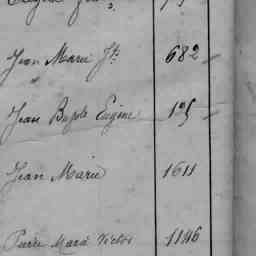 Jean Marie Jh 682
Jean Bapte Eugène 125
Jean Marie 1611
Pierre Marie Victor 1146